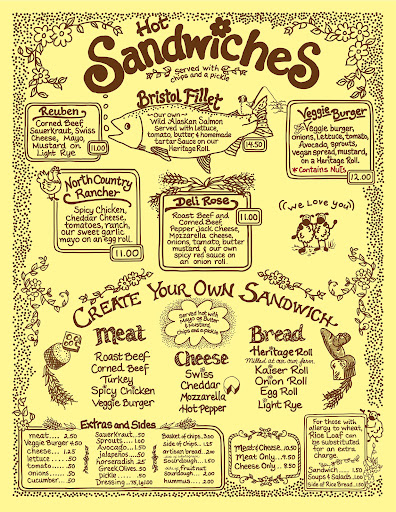 Hot
Sandwiches
Served with
chips and a pickle
Bristol Fillet
Our own
Wild Alaskan Salmon
Served with lettuce,
tomato, butter, & homemade
tartar Sauce on our
Heritage Roll.
14.50
Reuben
Corned Beef,
Sauerkraut, Swiss
Cheese, Mayo,
Mustard on
Light Rye
11.00
Veggie Burger
Veggie burger,
onions, Lettuce, tomato,
Avocado, sprouts,
vegan spread, mustard,
on a Heritage Roll.
*Contains Nuts
12.00
North Country
Rancher
Spicy Chicken,
Cheddar Cheese,
tomatoes, ranch,
our sweet garlic
mayo on an egg roll.
11.00
Deli Rose
11.00
Roast Beef and
Corned Beef,
Pepper Jack Cheese,
Mozzarella cheese,
onions, tomato, butter
mustard & our own
spicy red sauce on
an onion roll.
((We Love you))
Create Your Own Sandwich
Served hot with
Mayo or Butter
& Mustard
chips and a pickle
Meat
Roast Beef
Corned Beef
Turkey
Spicy Chicken
Veggie Burger
Cheese
Swiss
Cheddar
Mozzarella
Hot Pepper
Bread
Heritage Roll
Milled at our own farm
Kaiser Roll
Onion Roll
Egg Roll
Light Rye
Extras and Sides
meat..... 2.50
Veggie Burger 4.50
cheese.... 1.25
lettuce..... .50
tomato.... .50
onions..... .50
cucumber.. .50
Sauerkraut.. .50
Sprouts.... 1.00
Avocado.. 1.50
Jalapeños... .50
horseradish .25
Greek Olives .50
pickle..... .50
Dressing.. .75
Basket of chips. 3.00
side of chips.. 1.25
artisan bread.. 2.00
sourdough... 1.50
fruit nut
sourdough... 2.00
hummus.... 2.00
Meat & Cheese. 10.50
Meat Only... 9.50
Cheese Only... 8.50
For those with
allergy to wheat,
Rice Loaf can
be substituted
for an extra
charge.
Sandwich.... 1.50
Soups & Salads . 1.00
Side of Rice Bread.. 1.50